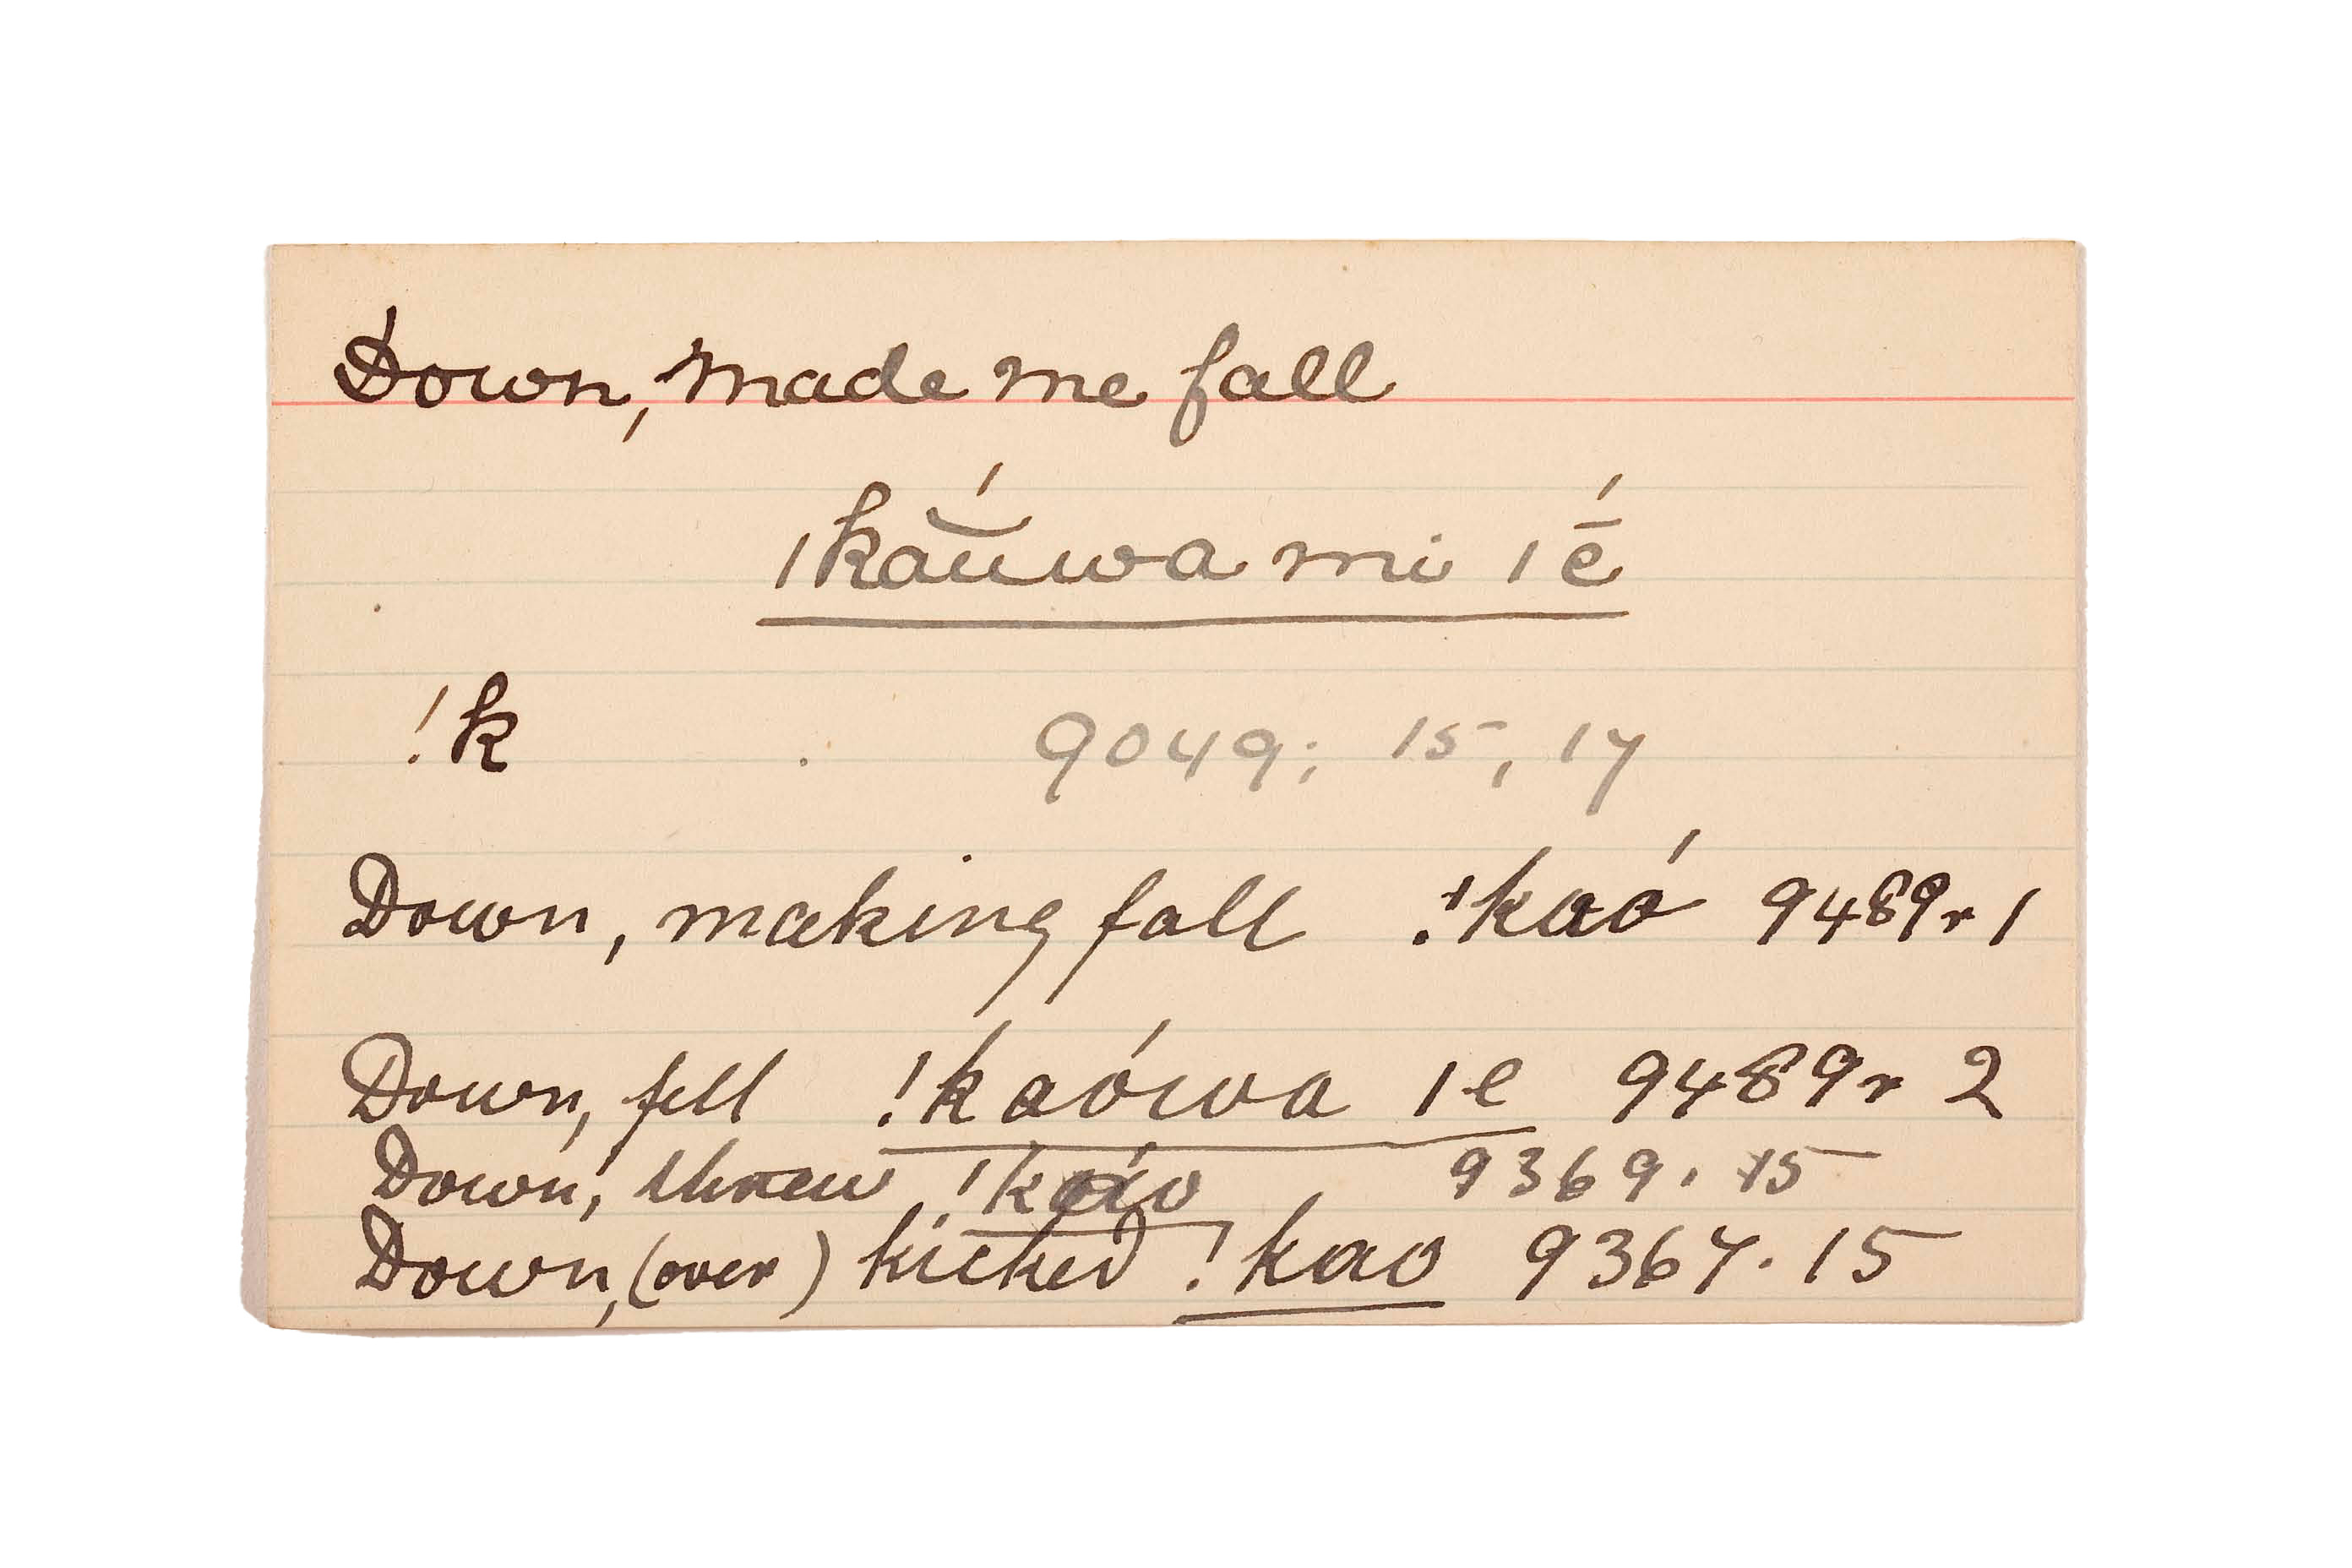 Down, made me fall
ǀkaŭ́wa mi ǀḗ
!k 9049; 15, 17
Down, making fall !kaó 9489r 1
Down, fell !kaówa ǀe 9489r 2
Down, threw !káo 9369. 15
Down, (over) kicked !kao 9367. 15